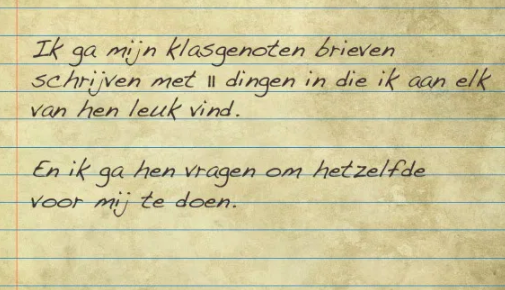 Ik ga mijn klasgenoten brieven
schrijven met 11 dingen in die ik aan elk
van hen leuk vind.
En ik ga hen vragen om hetzelfde
voor mij te doen.